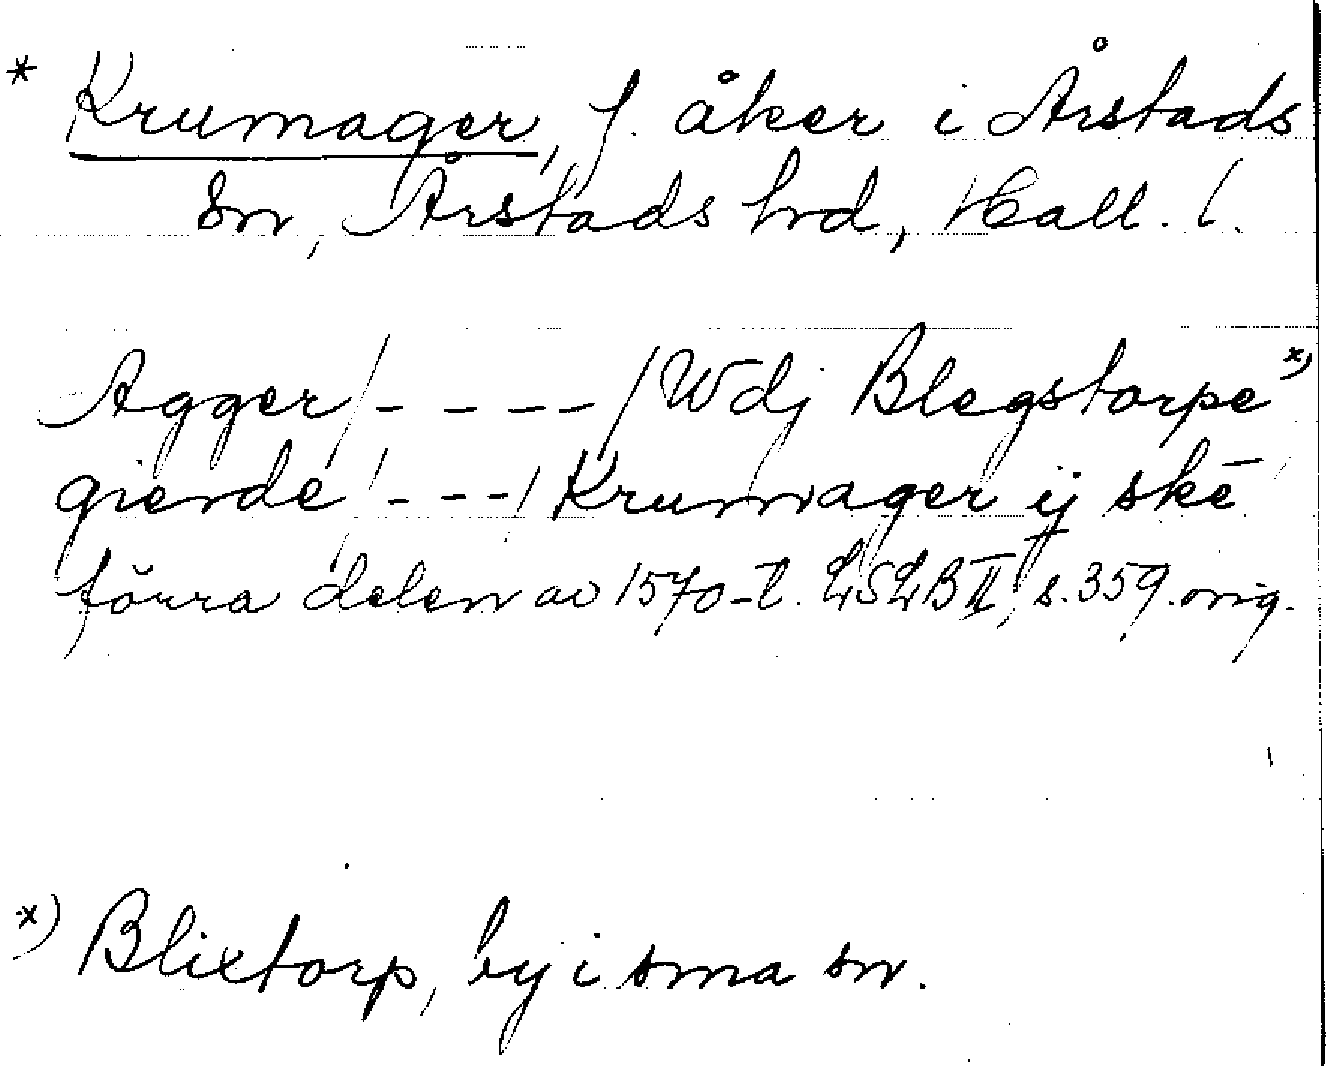 * Krumager, f. åker i Årstads
sn, Årstads hrd, Hall. l.
Agger/ - - - - / Wdj Blegstorpe x)
gierde / - - - / Krumager ij skē
förra delen av 1570-t. LSLB II, s. 359. orig.
x) Blixtorp, by i sma sn.